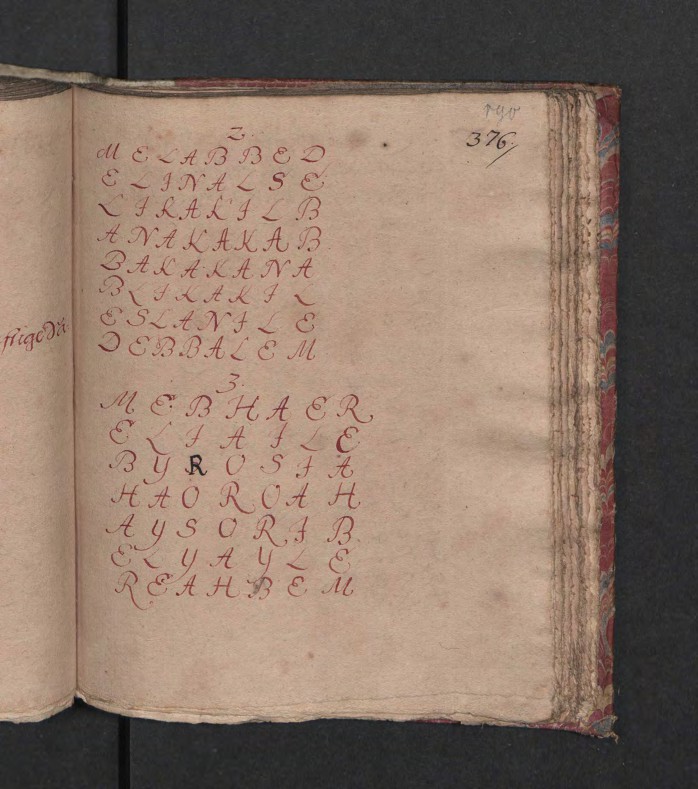 190
376.
2.
M E L A B B E D
E L I N A L S E
L I K A K I L B
A N A K A K A B
B A K A K A N A
B L I K A K I L
E S L A N I L E
D E B B A L E M
3.
M E B H A E R
E L I A I L E
B Y R O S I A
H A O R O A H
A Y S O R I B
E L Y A Y L E
R E A H B E M